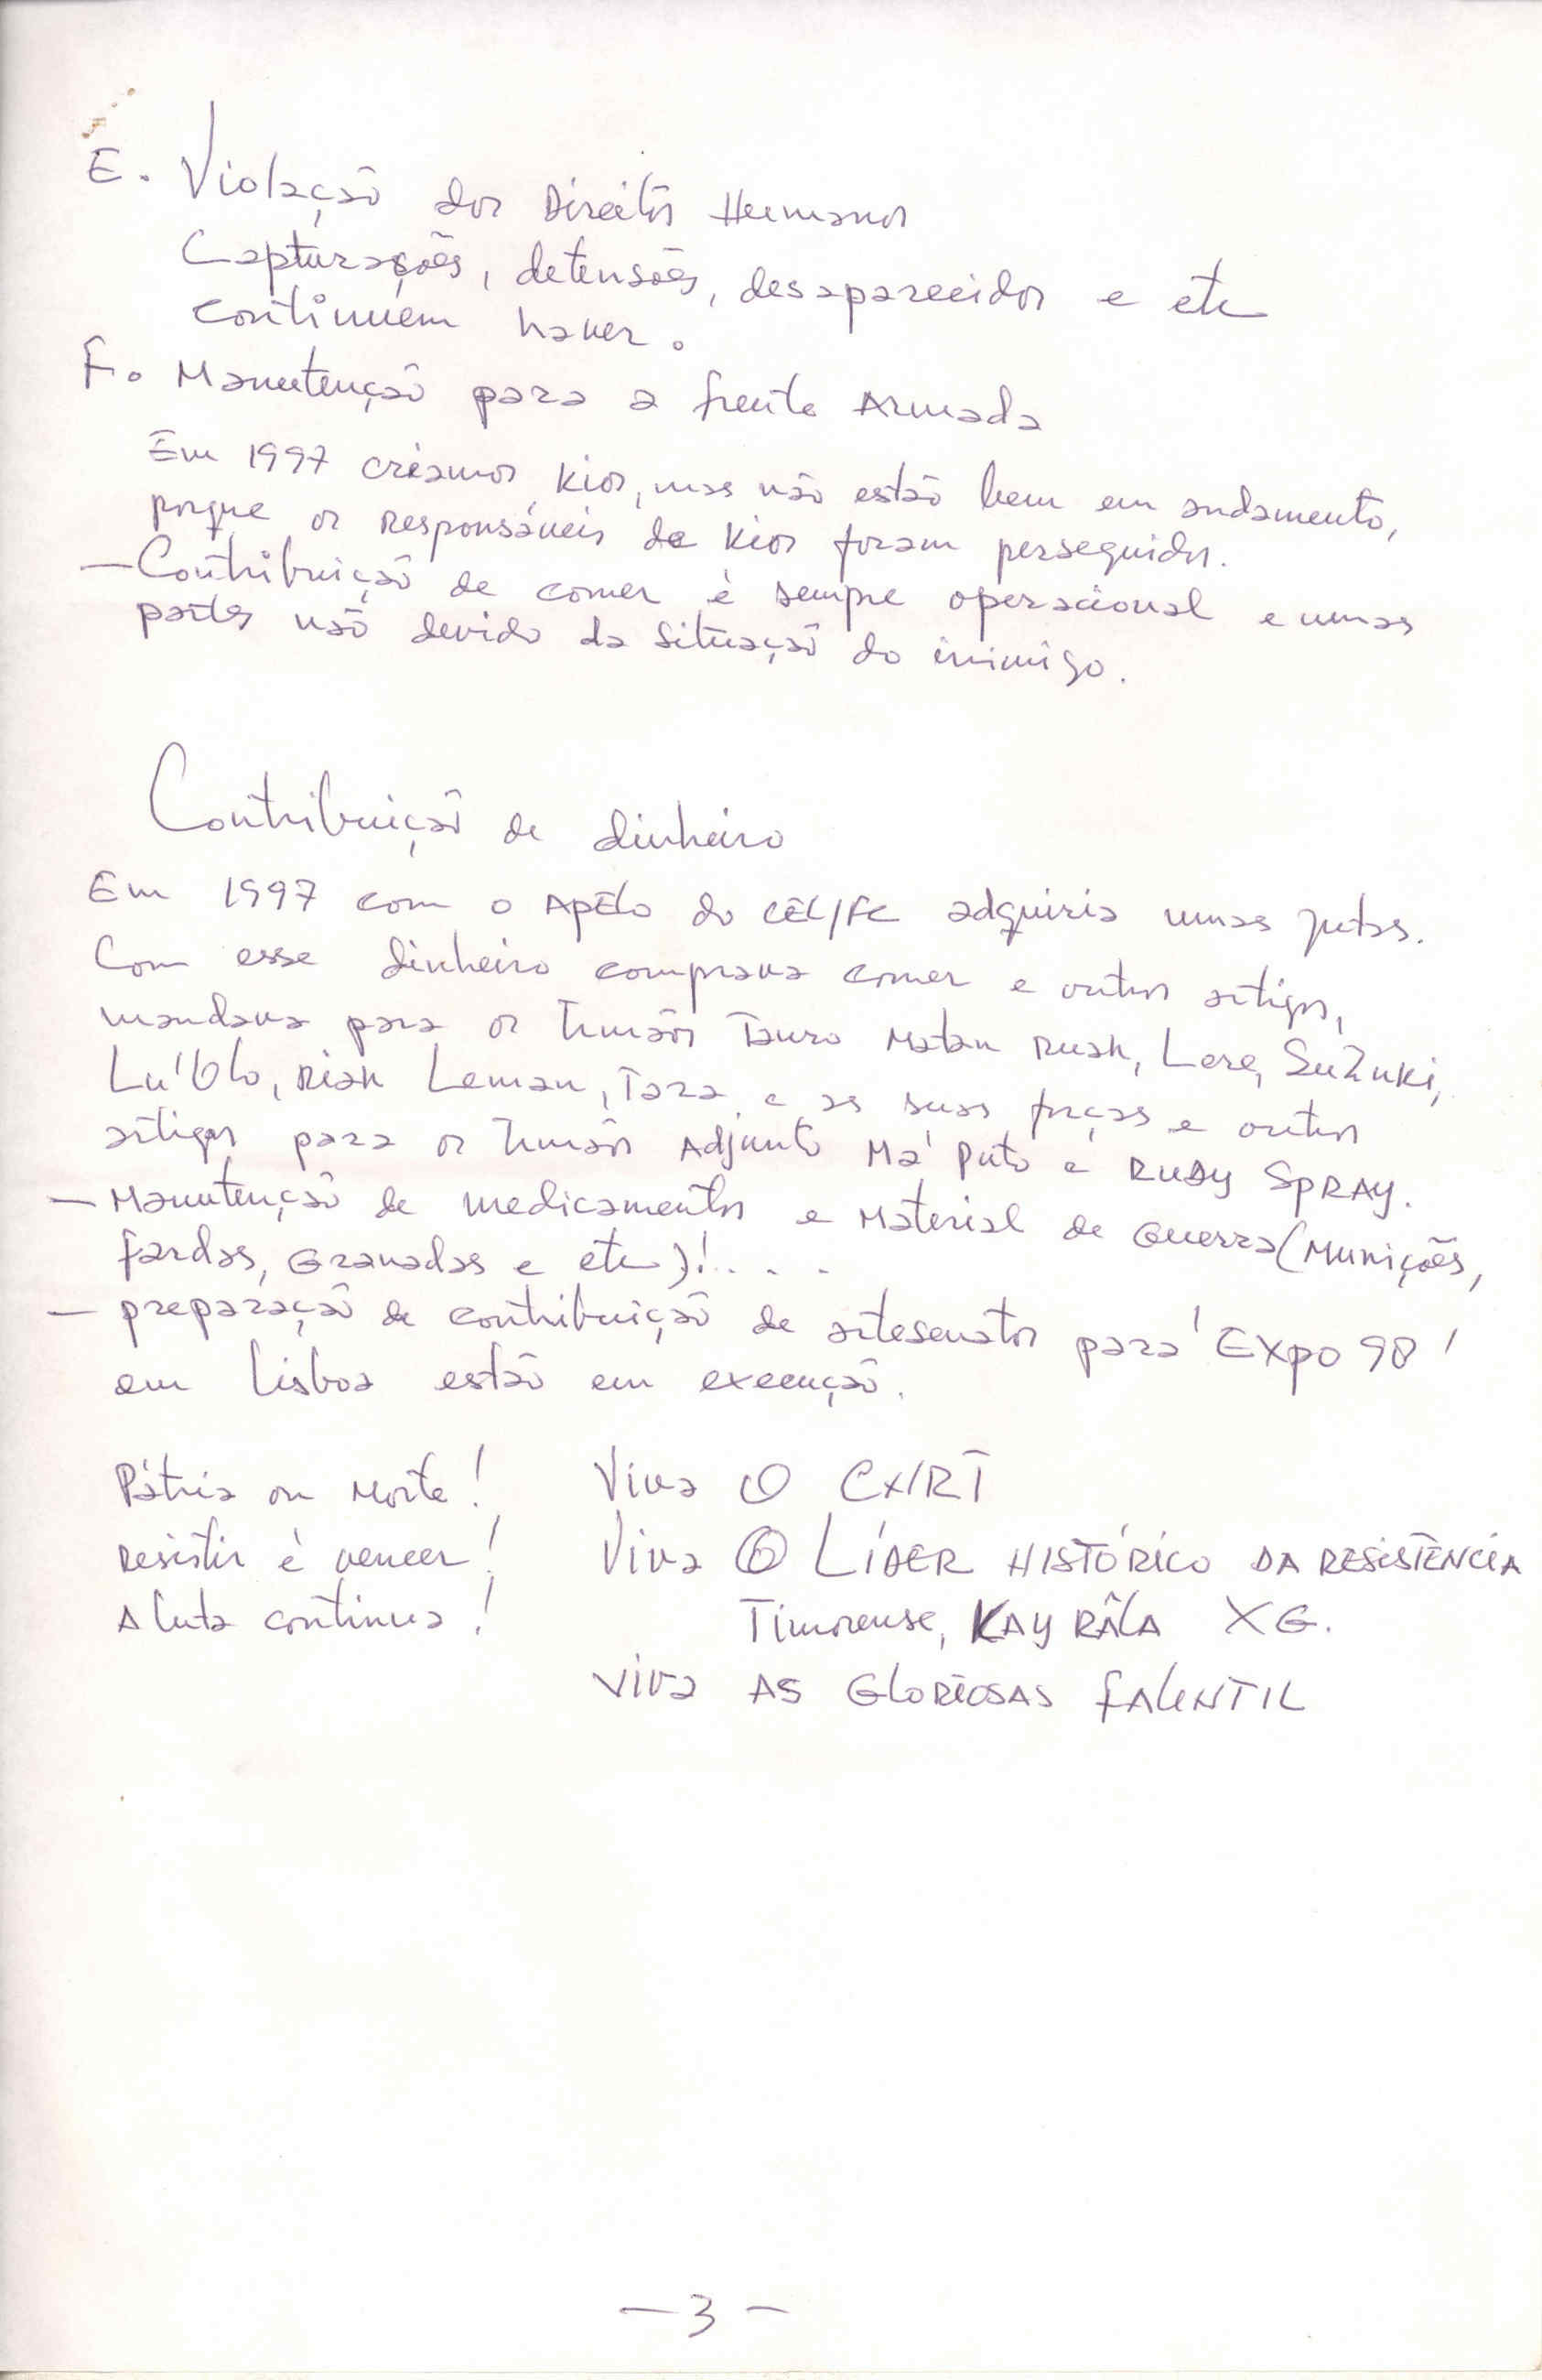 E. Violação dos Direitos Humanos
Capturações, detensões, desaparecidos e etc
continuem haver.
F. Manutenção para a frente Armada
Em 1997 criamos kios, mas não estão bem em andamento,
porque os responsáveis de kios foram perseguidos.
— Contribuição de comer é sempre operacional e umas
partes não devido da situação do inimigo.
Contribuição de dinheiro
Em 1997 com o Apêlo do CEL/FC adquiria umas
Com esse dinheiro comprava comer e outros artigos,
mandava para os Irmãos Tauro Matan Ruak, Lere, Suzuki,
Lu'Olo, Riak Leman, Tara e as suas forças e outros
artigos para os Irmãos Adjunto Ma'Puto e RUDY SPRAY.
— Manutenção de medicamentos e Material de Guerra (Munições,
fardas, Granadas e etc)!....
— preparação de contribuição de artesenatos para 'EXPO 98'
em Lisboa estão em execução.
Pátria ou Morte! Viva O CN/RT
Resistir é vencer! Viva O LÍDER HISTÓRICO DA RESISTÊNCIA
A luta continua! Timorense, KAY RÂLA XG.
Viva AS GLORIOSAS FALINTIL
— 3 —